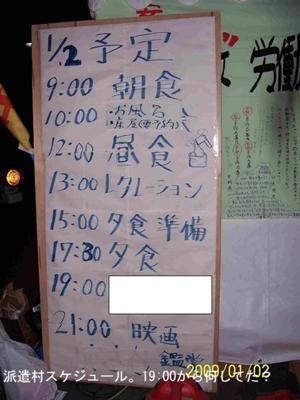 1/2 予定
9:00 朝食
10:00 ・お風呂
・床屋(要予約)
12:00 昼食
13:00 レクレーション
15:00 夕食準備
17:30 夕食
19:00
21:00 映画
鑑賞
労働
2009/01/02
派遣村スケジュール。19:00から何してた?